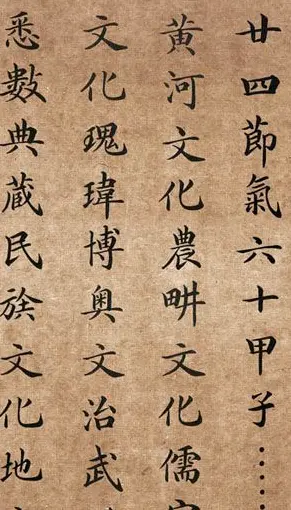 廿四節氣六十甲子……
黃河文化農畊文化儒
文化瑰瑋博奧文治武
悉數典藏民族文化地